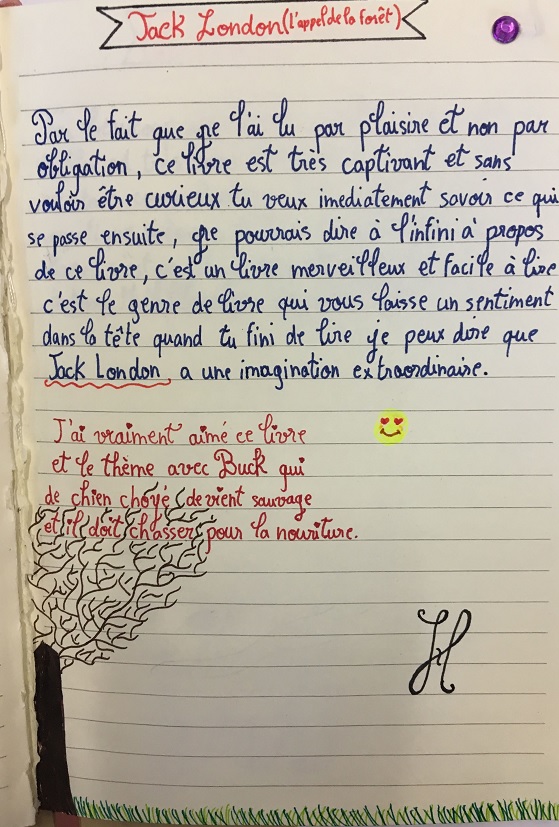 Jack London (l'appel de la forêt)
Par le fait que je l'ai lu par plaisire et non par
obligation, ce livre est très captivant et sans
vouloir être curieux tu veux imediatement savoir ce qui
se passe ensuite, je pourrais dire à l'infini à propos
de ce livre, c'est un livre merveilleux et facile à lire
c'est le genre de livre qui vous laisse un sentiment
dans la tête quand tu fini de lire je peux dire que
Jack London a une imagination extraordinaire.
J'ai vraiment aimé ce livre
et le thème avec Buck qui
de chien choyé, devient sauvage
et il doit chasser pour la nouriture.
H